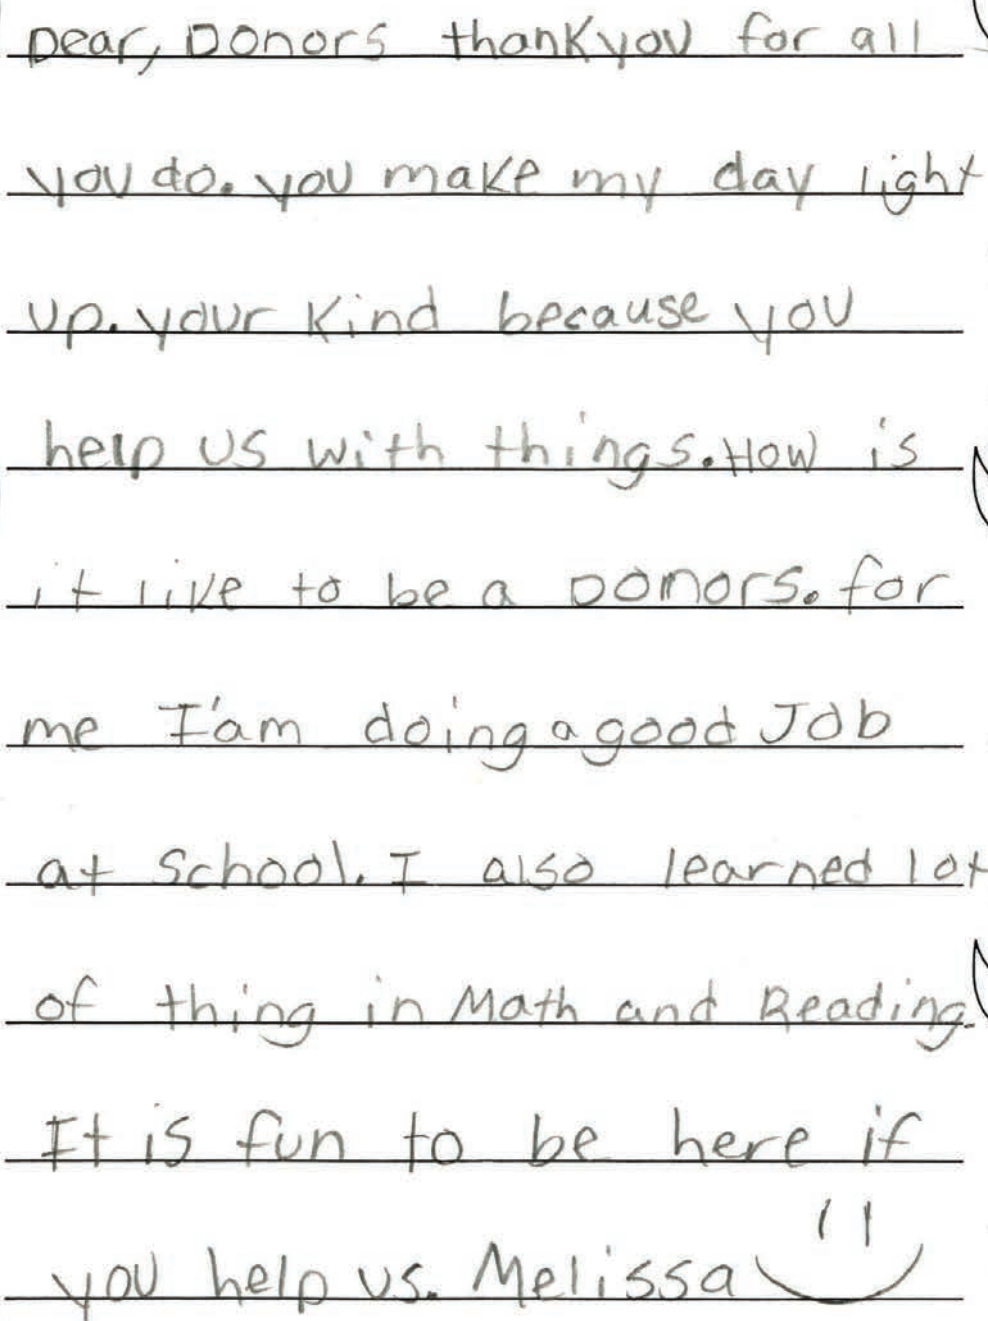 Dear, Donors thankyou for all
you do. you make my day light
up. your kind because you
help us with things. How is
it like to be a Donors. for
me I'am doing a good Job
at School. I also learned lot
of thing in Math and Reading.
It is fun to be here if
you help us. Melissa